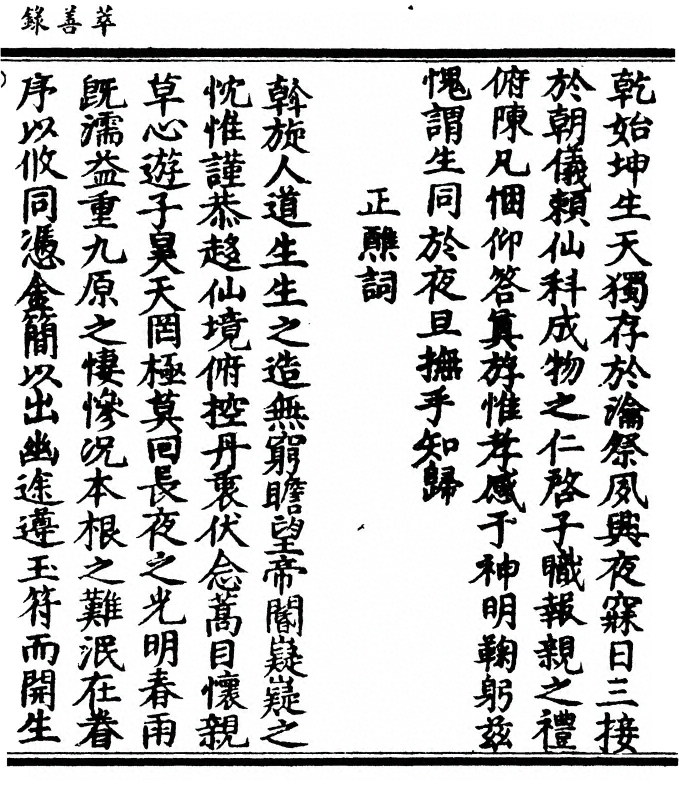 萃善錄
乾始坤生天獨存於瀹祭夙興夜寐日三接
於朝儀賴仙科成物之仁啓子職報親之禮
俯陳凡悃仰答眞游惟孝感于神明鞠躬兹
愧謂生同於夜旦撫手知歸
正醮詞
斡旋人道生生之造無窮瞻望帝閽嶷嶷之
忱惟謹恭趍仙境俯控丹衷伏念蒿目懷親
草心遊子昊天罔極莫回長夜之光明春雨
旣濡益重九原之悽慘况本根之難泯在眷
序以攸同憑金簡以出幽途遵玉符而開生